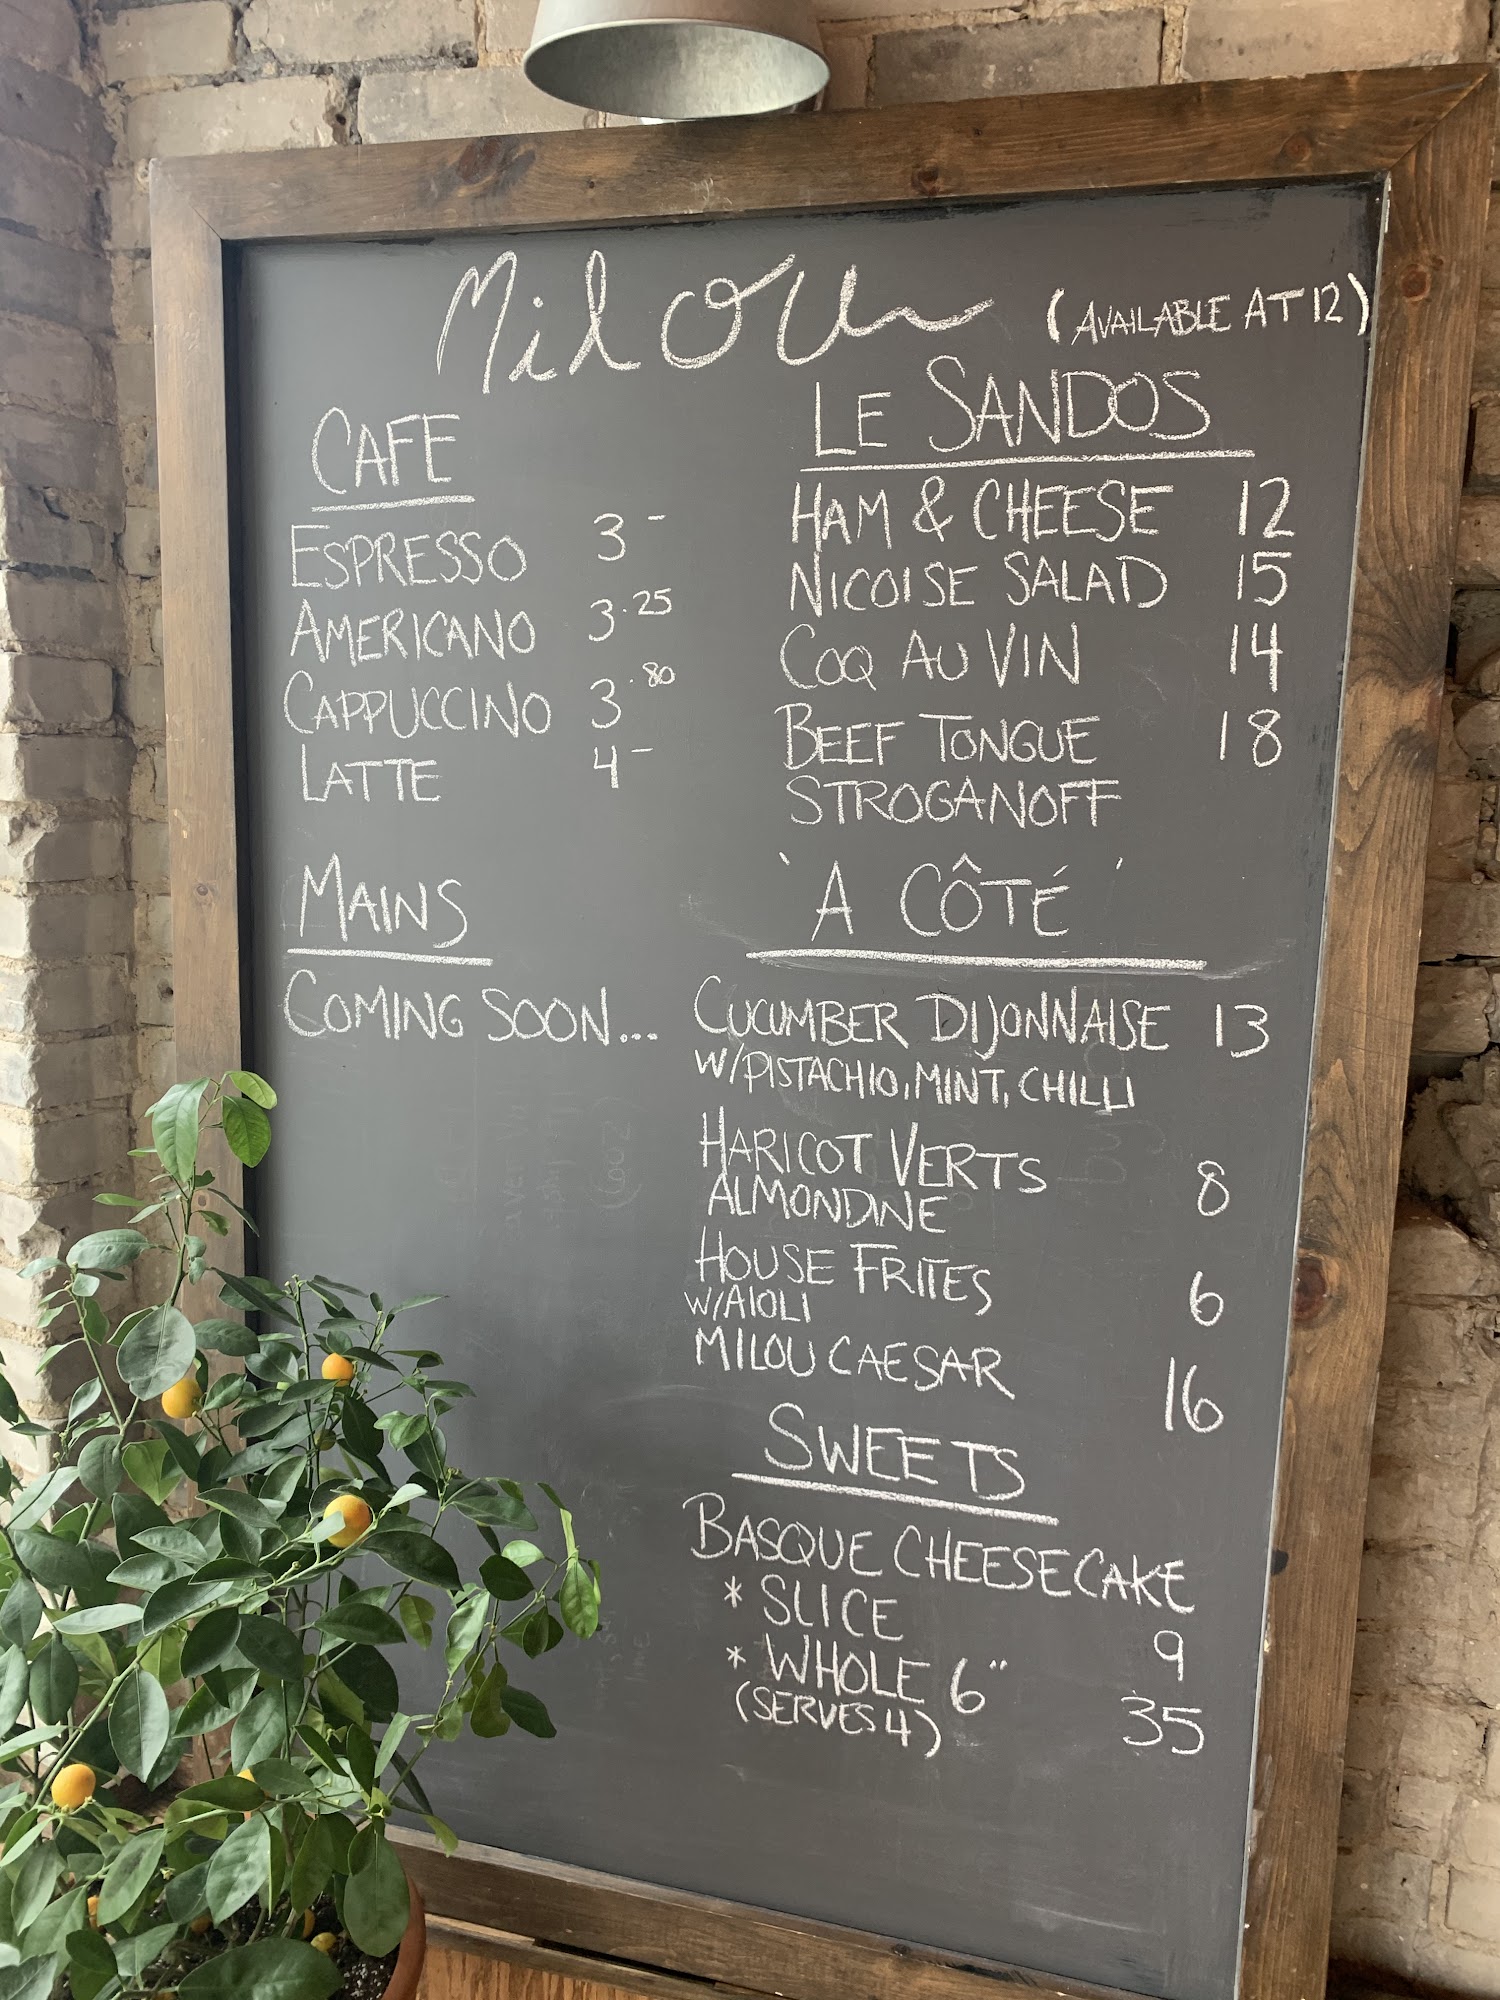 Milou
CAFE
ESPRESSO 3 -
AMERICANO 3.25
CAPPUCCINO 3.80
LATTE 4 -
MAINS
COMING SOON...
(AVAILABLE AT 12)
LE SANDOS
HAM & CHEESE 12
NICOISE SALAD 15
COQ AU VIN 14
BEEF TONGUE 18
STROGANOFF
'A CÔTÉ'
CUCUMBER DIJONNAISE 13
W/PISTACHIO, MINT, CHILLI
HARICOT VERTS
ALMONDINE 8
HOUSE FRITES
W/AIOLI 6
MILOU CAESAR 16
SWEETS
BASQUE CHEESECAKE
* SLICE 9
* WHOLE 6" 35
(SERVES 4)